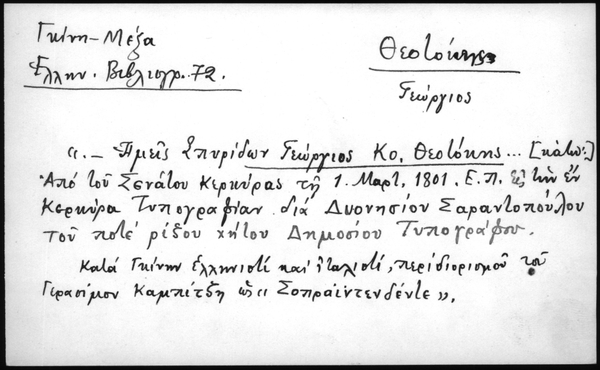 Γκίνη-Μέξα
Ἑλλην. Βιβλιογρ. 72.
Θεοτόκης
Γεώργιος
«.— Ἡμεῖς Σπυρίδων Γεώργιος Κο. Θεοτόκης... [κάτω:]
Ἀπό τοῦ Σενάτου Κερκύρας τῇ 1. Μαρτ. 1801. Ε.Π. εἰς τὴν ἐν
Κερκύρα Τυπογραφίαν διά Διονησίου Σαραντοπούλου
τοῦ ποτέ Δημοσίου Τυπογράφου.
Κατά Γκίνην ἑλληνιστί καί ἰταλιστί, περί διορισμοῦ τοῦ
Γερασίμου Καμπίτζη ὡς «Σοπραϊντενδέντε».